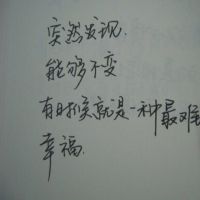 突然发现.
能够不变
有时候就是一种最难
幸福.